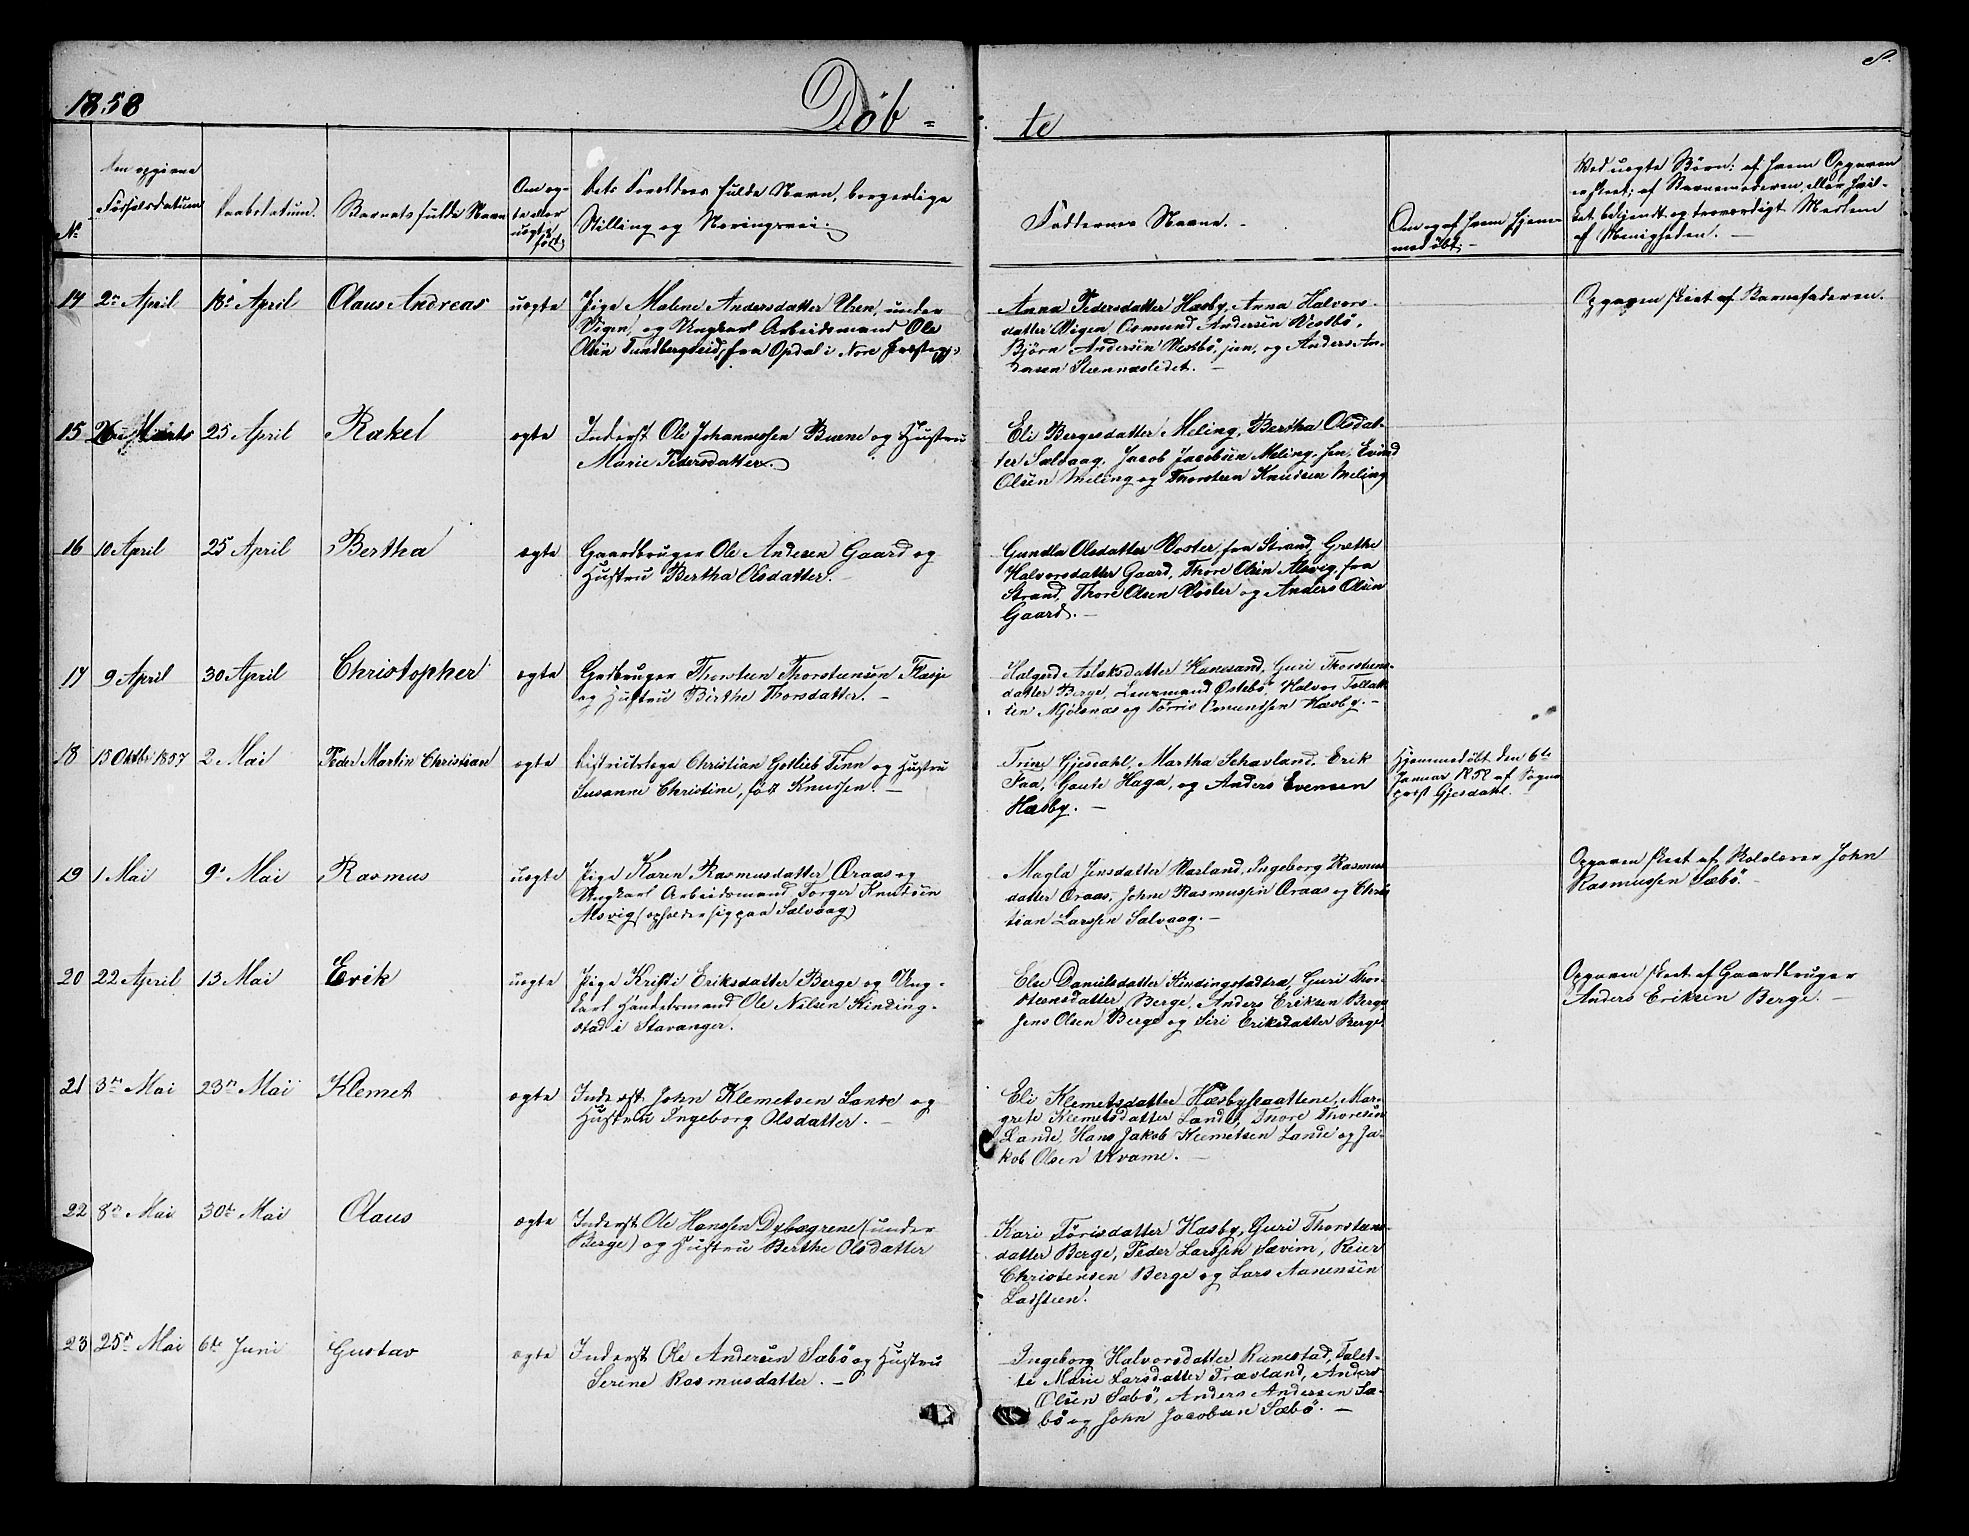 1858
Døb-
te
Den opgivne
Fødselsdatum
Daabsdatum.
Barnets fulde Navn
Om æg-
te eller
uægte
født
Dets Forældres fulde Navn, borgerlige
Stilling og Næringsvei.
Faddernes Navne. -
Om og af hvem hjem-
medøbt. -
Ved uægte Børn: af hvem Opgaven
er skeet; af Barnemoderen, eller hvil-
ket bekjendt og troværdigt Medlem
af Menigheden. -
No
14 2n April 18de April Olaus Andreas uægte Pige Malene Andersdatter under
Vigen, og Ungkarl Arbeidsmand Ole
Olsen fra Opdal i Nore Præstegj.
Anna Pedersdatter Hæsby, Anna Halvors-
datter Vigen, Osmund Andersen Vestbø,
Bjørn Andersen Vestbø, jun, og Anders An-
dersen
Opgaven skeet af Barnefaderen.
15 26 Marts 25 April Rakel ægte Inderst Ole Johannessen Buene og Hustru
Marie Pedersdatter.
Eli Bergesdatter Meling, Bertha Olsdat-
ter Salvaag, Jacob Jacobsen Meling, sen, Eivind
Olsen Meling og Thorsteen Knudsen Meling
16 10 April 25 April Bertha ægte Gaardbruger Ole Andersen Gaard og
Hustru Bertha Olsdatter. -
Gundla Olsdatter Voster, fra Strand, Grethe
Halvorsdatter Gaard, Thore Olsen Alsvig, fra
Strand, Thore Olsen Voster og Anders Olsen
Gaard. -
17 9 April 30 April Christopher ægte Gdbruger Thorsteen Thorsteensen
og Hustru Birthe Thorsdatter. -
Halgerd Aslaksdatter Kanesand, Guri Thorsteens-
datter Berge, Lensmand Østebø, Halvor
Mjølsnæs og Tørris Omundsen Hæsby. -
18 15 Oktbr 1857 2 Mai Peder Martin Christian ægte Districtslæge Christian Gotlieb Finn og Hustru
Susanne Christine, født Knudsen. -
Trine Gjesdahl, Martha Schavland, Erik
Faa, Gaute Haga, og Anders Evensen
Hæsby. -
Hjemmedøbt den 6te
Januar 1858 af Sogne
præst Gjesdahl.
19 1 Mai 9de Mai Rasmus uægte Pige Karen Rasmusdatter Aaraas og
Ungkarl Arbeidsmand Torger Knudsen
Alsvig (opholder sig paa Salvaag)
Magla Jensdatter Varland, Ingeborg Rasmus
datter Aaraas, Johne Rasmussen Aaraas og Chris
tian Larssen Salvaag. -
Opgaven skeet af Skolelærer John
Rasmussen Sæbø. -
20 22 April 13 Mai Erik uægte Pige Kristi Eriksdatter Berge og Ung-
karl Handelsmand Ole Nilsen Kinding-
stad i Stavanger.
Else Danielsdatter Guri Thor-
steensdatter Berge, Anders Eriksen Berge,
Jens Olsen Berge og Siri Eriksdatter Berge.
Opgaven skeet af Gaardbruger
Anders Eriksen Berge. -
21 3die Mai 23de Mai Klemet ægte Inderst John Klemetsen Lande og
Hustru Ingeborg Olsdatter. -
Eli Klemetsdatter Hæsby, Mar-
grete Klemetsdatter Lande, Thore Thoresen
Lande, Hans Jakob Klemetsen Lande og Ja-
kob Olsen Kvame. -
22 8de Mai 30te Mai Olaus ægte Inderst Ole Hanssen Dybegrene (under
Berge) og Hustru Berthe Olsdatter
Kari Tørrisdatter Hæsby, Guri Thorsteens-
datter Berge, Peder Larssen Sævim, Reier
Christensen Berge og Lars Aanensen
Ladsteen.
23 25de Mai 6te Juni Gustav ægte Inderst Ole Andersen Sæbø og Hustru
Serine Rasmusdatter. -
Ingeborg Halvorsdatter Runestad, Talet-
te Marie Larsdatter Trævland, Anders
Olsen Sæbø, Anders Andersen Sæ-
bø og John Jacobsen Sæbø. -